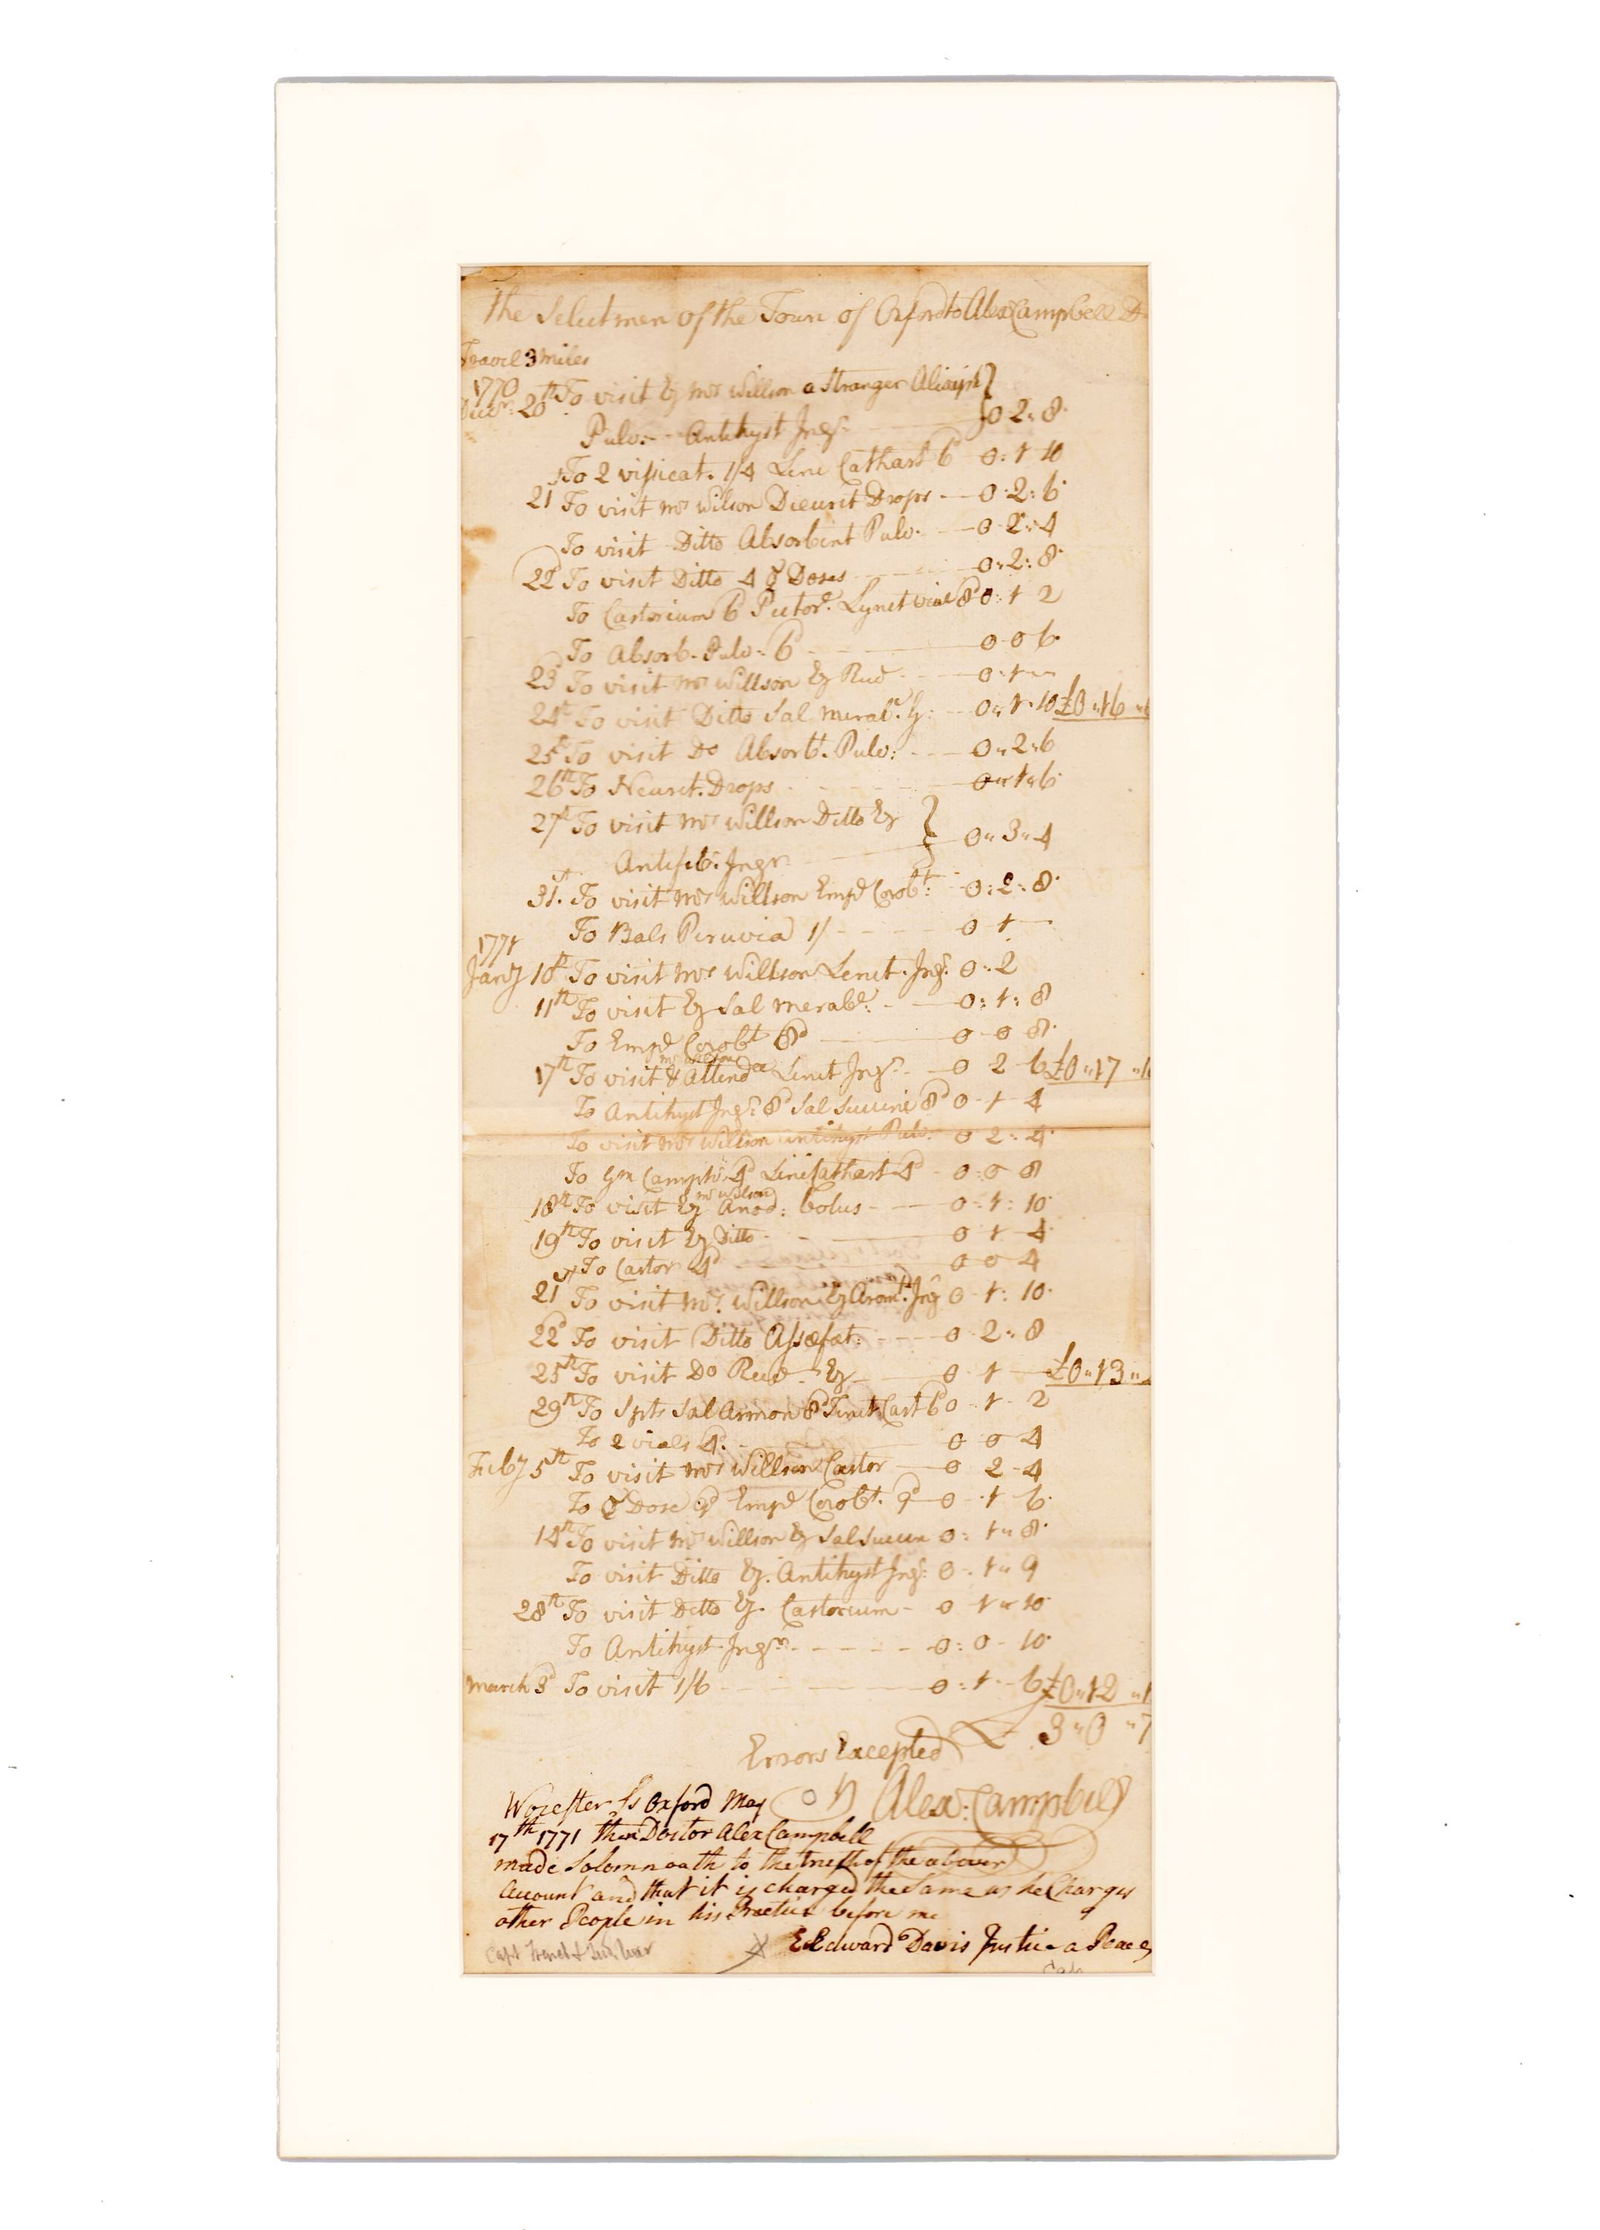 The Selectmen of the Town of Oxford to Alex Campbell Dr
Travel 3 miles
1770
Decr. 20th To visit Mrs Willson a Stranger
Pulv. Antihyst Ingr. 0 2: 8
To 2 vissicat. 1/4 Leni Cathart 6d 0: 1 10
21 To visit Mrs Wilson Dieuret Drops 0: 2: 6
To visit Ditto Absorbent Pulv. 0 2: 4
22d To visit Ditto 4 Doses 0: 2: 8
To Castorium 6d Pector. Lynct vial 8d 0: 1 2
To Absorb. Pulv: 6d 0 0 6
23d To visit Mrs Willson Eg Red 0: 1 -
24th To visit Ditto Sal Merabe. Eg: 0: 1: 10 £0: 16
25th To visit Do Absorbt. Pulv: 0: 2: 6
26th To Neurit. Drops 0: 1: 6
27th To visit Mrs Willson Ditto Eg
Antifeb: Ingr. 0: 3: 4
31st. To visit Mrs Willson Empd Corobt: 0: 2: 8
To Bals Peruvia 1/ 0 1 -
1771
Jany 10th To visit Mrs Willson Lenit. Ingr. 0: 2
11th To visit Eg Sal Merabe: 0: 1: 8
To Empd Corobt 8d 0 0 8
Mrs Willson
17th To visit & Attendce Lenit Ingr. 0 2 6 £0: 17
To Antihyst Ingr 8d Sal Succini 8d 0 1 4
To visit Mrs Willson Antihyst Pulv. 0 2: 4
To Gm Campho 4d Leni Cathart 4d 0: 0 8
Mrs Willson
18th To visit Eg Anod: bolus 0: 1: 10
19th To visit Eg Ditto 0 1 4
To Castor 4d 0 0 4
21st To visit Mrs. Willson Eg Aromt. Ingr 0 1: 10
22d To visit Ditto Assafœt: 0 2: 8
25th To visit Do Red Eg 0 1 - £0: 13
29th To Spts Sal Armon 8d Tinct Cast 6d 0 1 2
To 2 vials 4d. 0 0 4
Feby 5th To visit Mrs Willson Castor 0 2 4
To Dose 9d Empd Corobt. 9d 0 1 6
14th To visit Mrs Willson Eg Sal Succin 0: 1: 8
To visit Ditto Eg. Antihyst Ingr: 0: 1: 9
28th To visit Ditto Eg. Castorium 0 1: 10
To Antihyst Ingr. 0: 0 10
March 3d To visit 1/6 0: 1 6 £0: 12
Errors Excepted £ 3: 0: 7
Alex: Campbell
Worcester Ss Oxford May
17th 1771 then Doctor Alex Campbell
made Solomn oath to the truth of the above
account and that it is charged the Same as he Charges
other People in his Practice before me
Edward Davis Justice a Peace